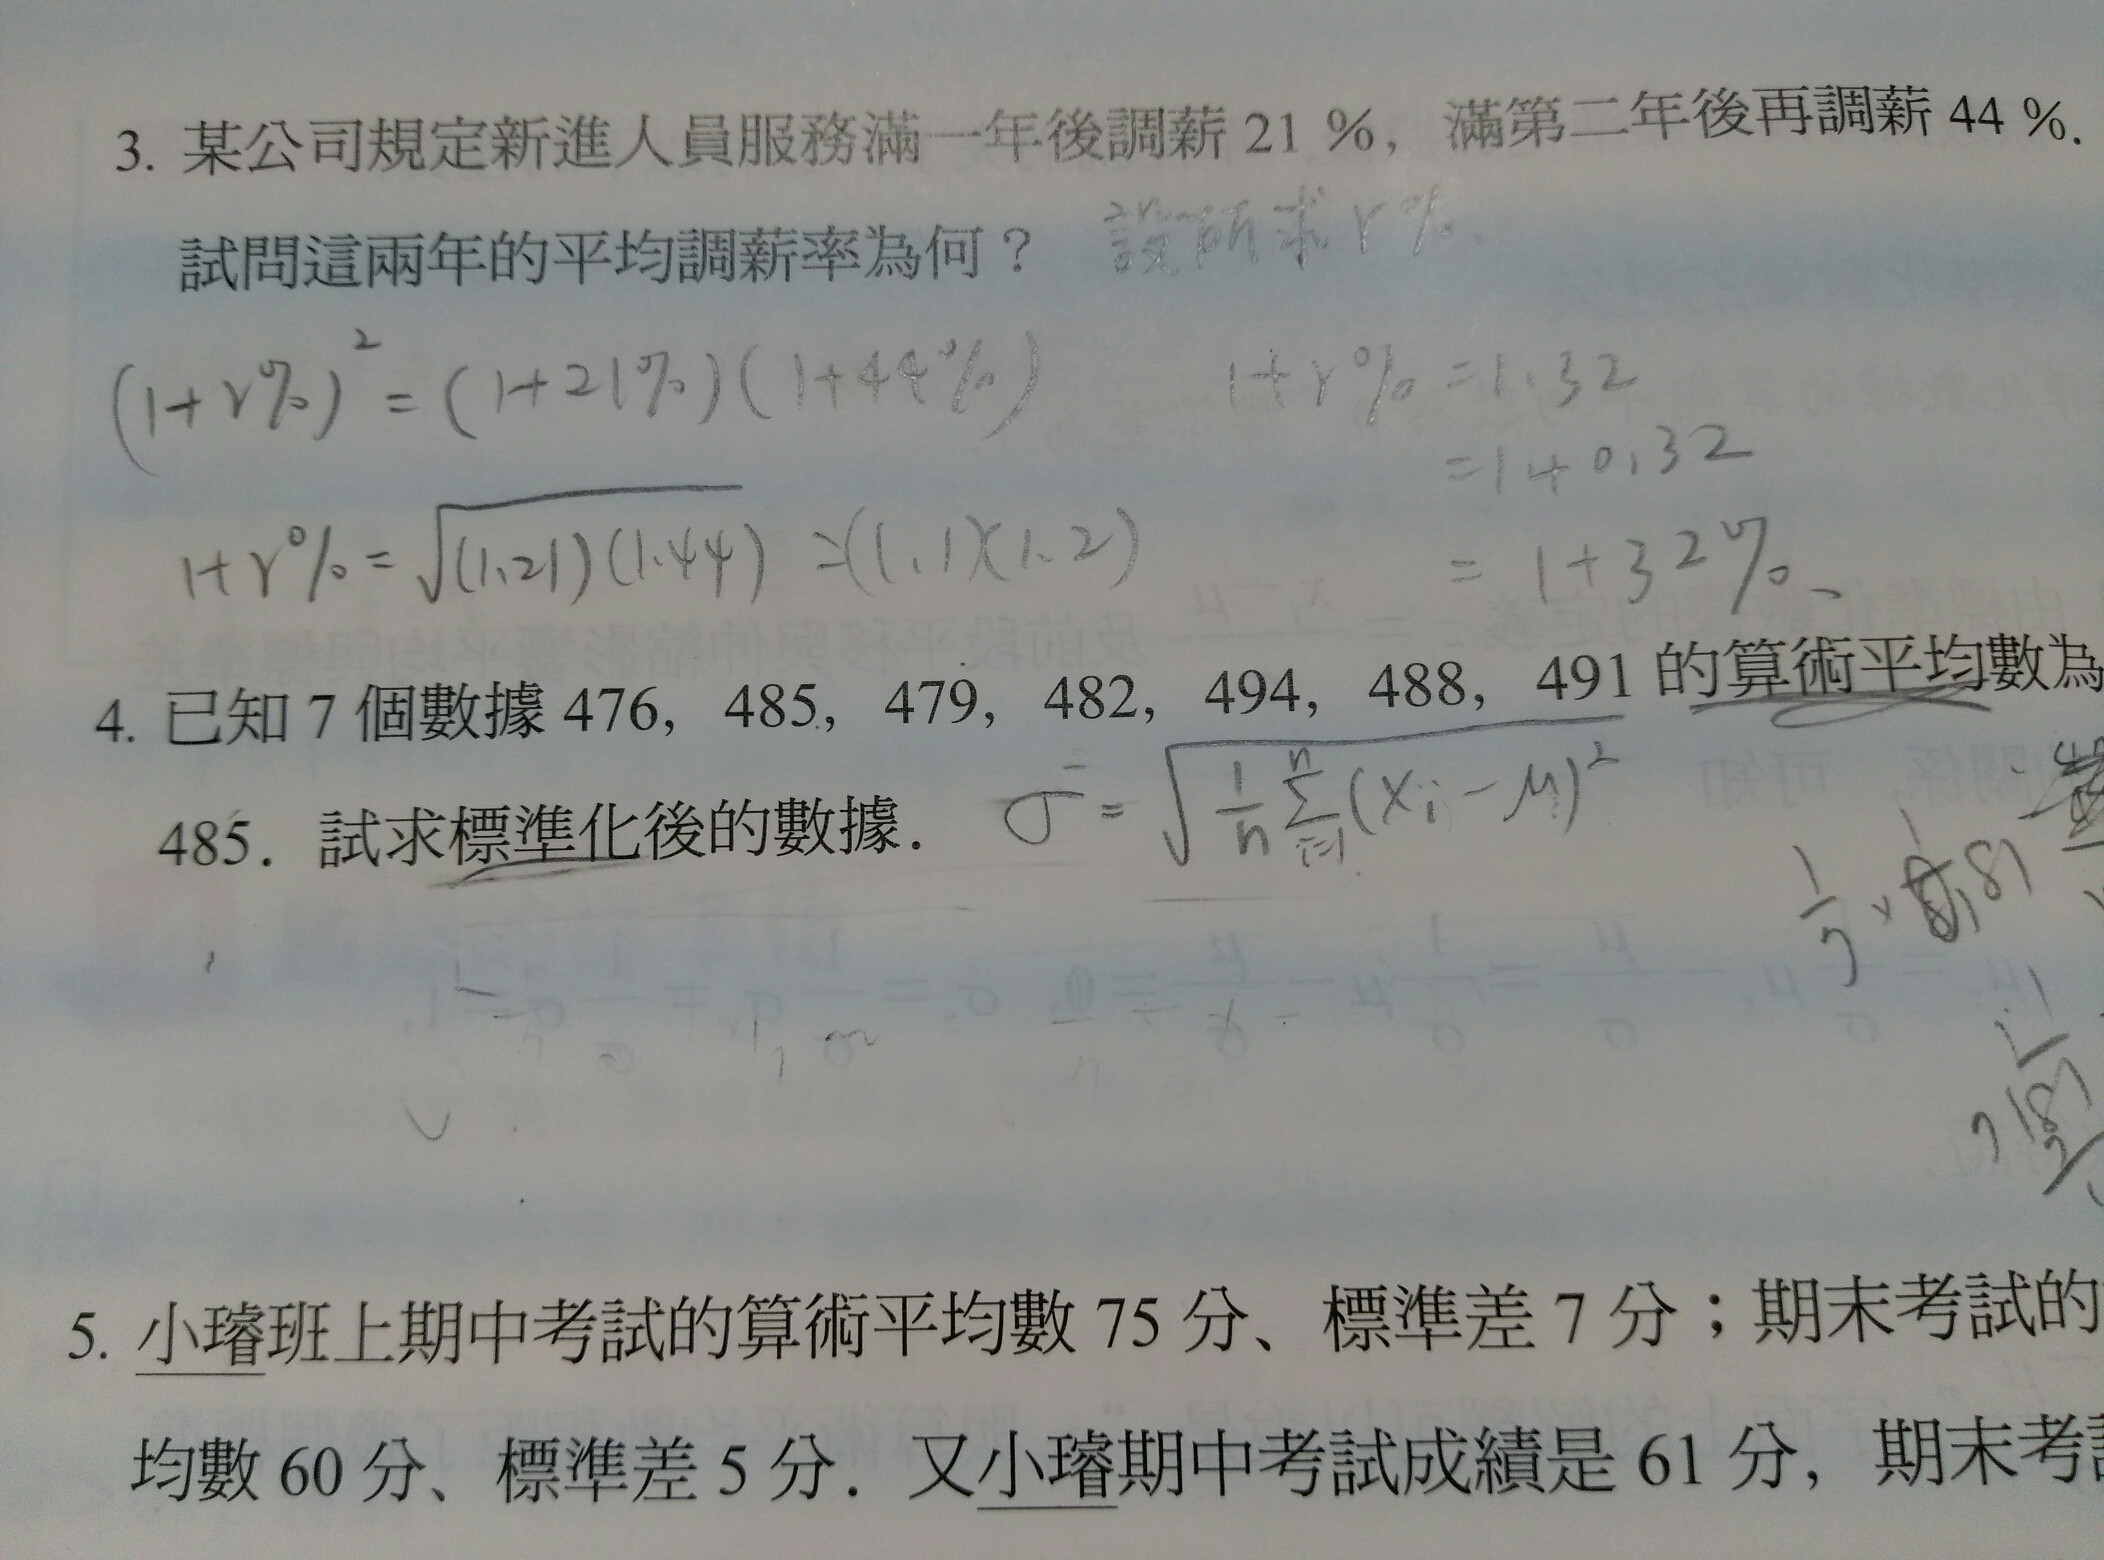 3. 某公司規定新進人員服務滿一年後調薪 21 %，滿第二年後再調薪 44 %.
試問這兩年的平均調薪率為何？ 設所求 r%.
(1+r%)² = (1+21%)(1+44%) 1+r% = 1.32
= 1+0.32
1+r% = √(1.21)(1.44) = (1.1)(1.2) = 1+32%
4. 已知 7 個數據 476，485，479，482，494，488，491 的算術平均數為
485．試求標準化後的數據． σ = √1/n Σⁿᵢ₌₁ (xᵢ - μ)²
5. 小璿班上期中考試的算術平均數 75 分、標準差 7 分；期末考試的
均數 60 分、標準差 5 分．又小璿期中考試成績是 61 分，期末考